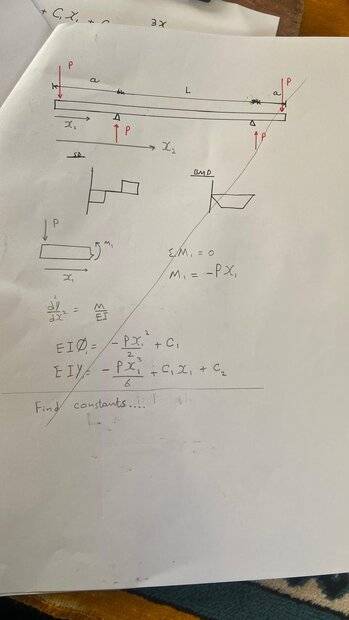 + C1 X1 + C 3X
P
P
a
L
a
x1
P
P
x2
SD
BMD
P
M1
x1
ΣM1 = 0
M1 = -PX1
d²y/dx² = M/EI
EIØ1 = -PX1²/2 + C1
EIY = -PX1³/6 + C1 X1 + C2
Find constants....